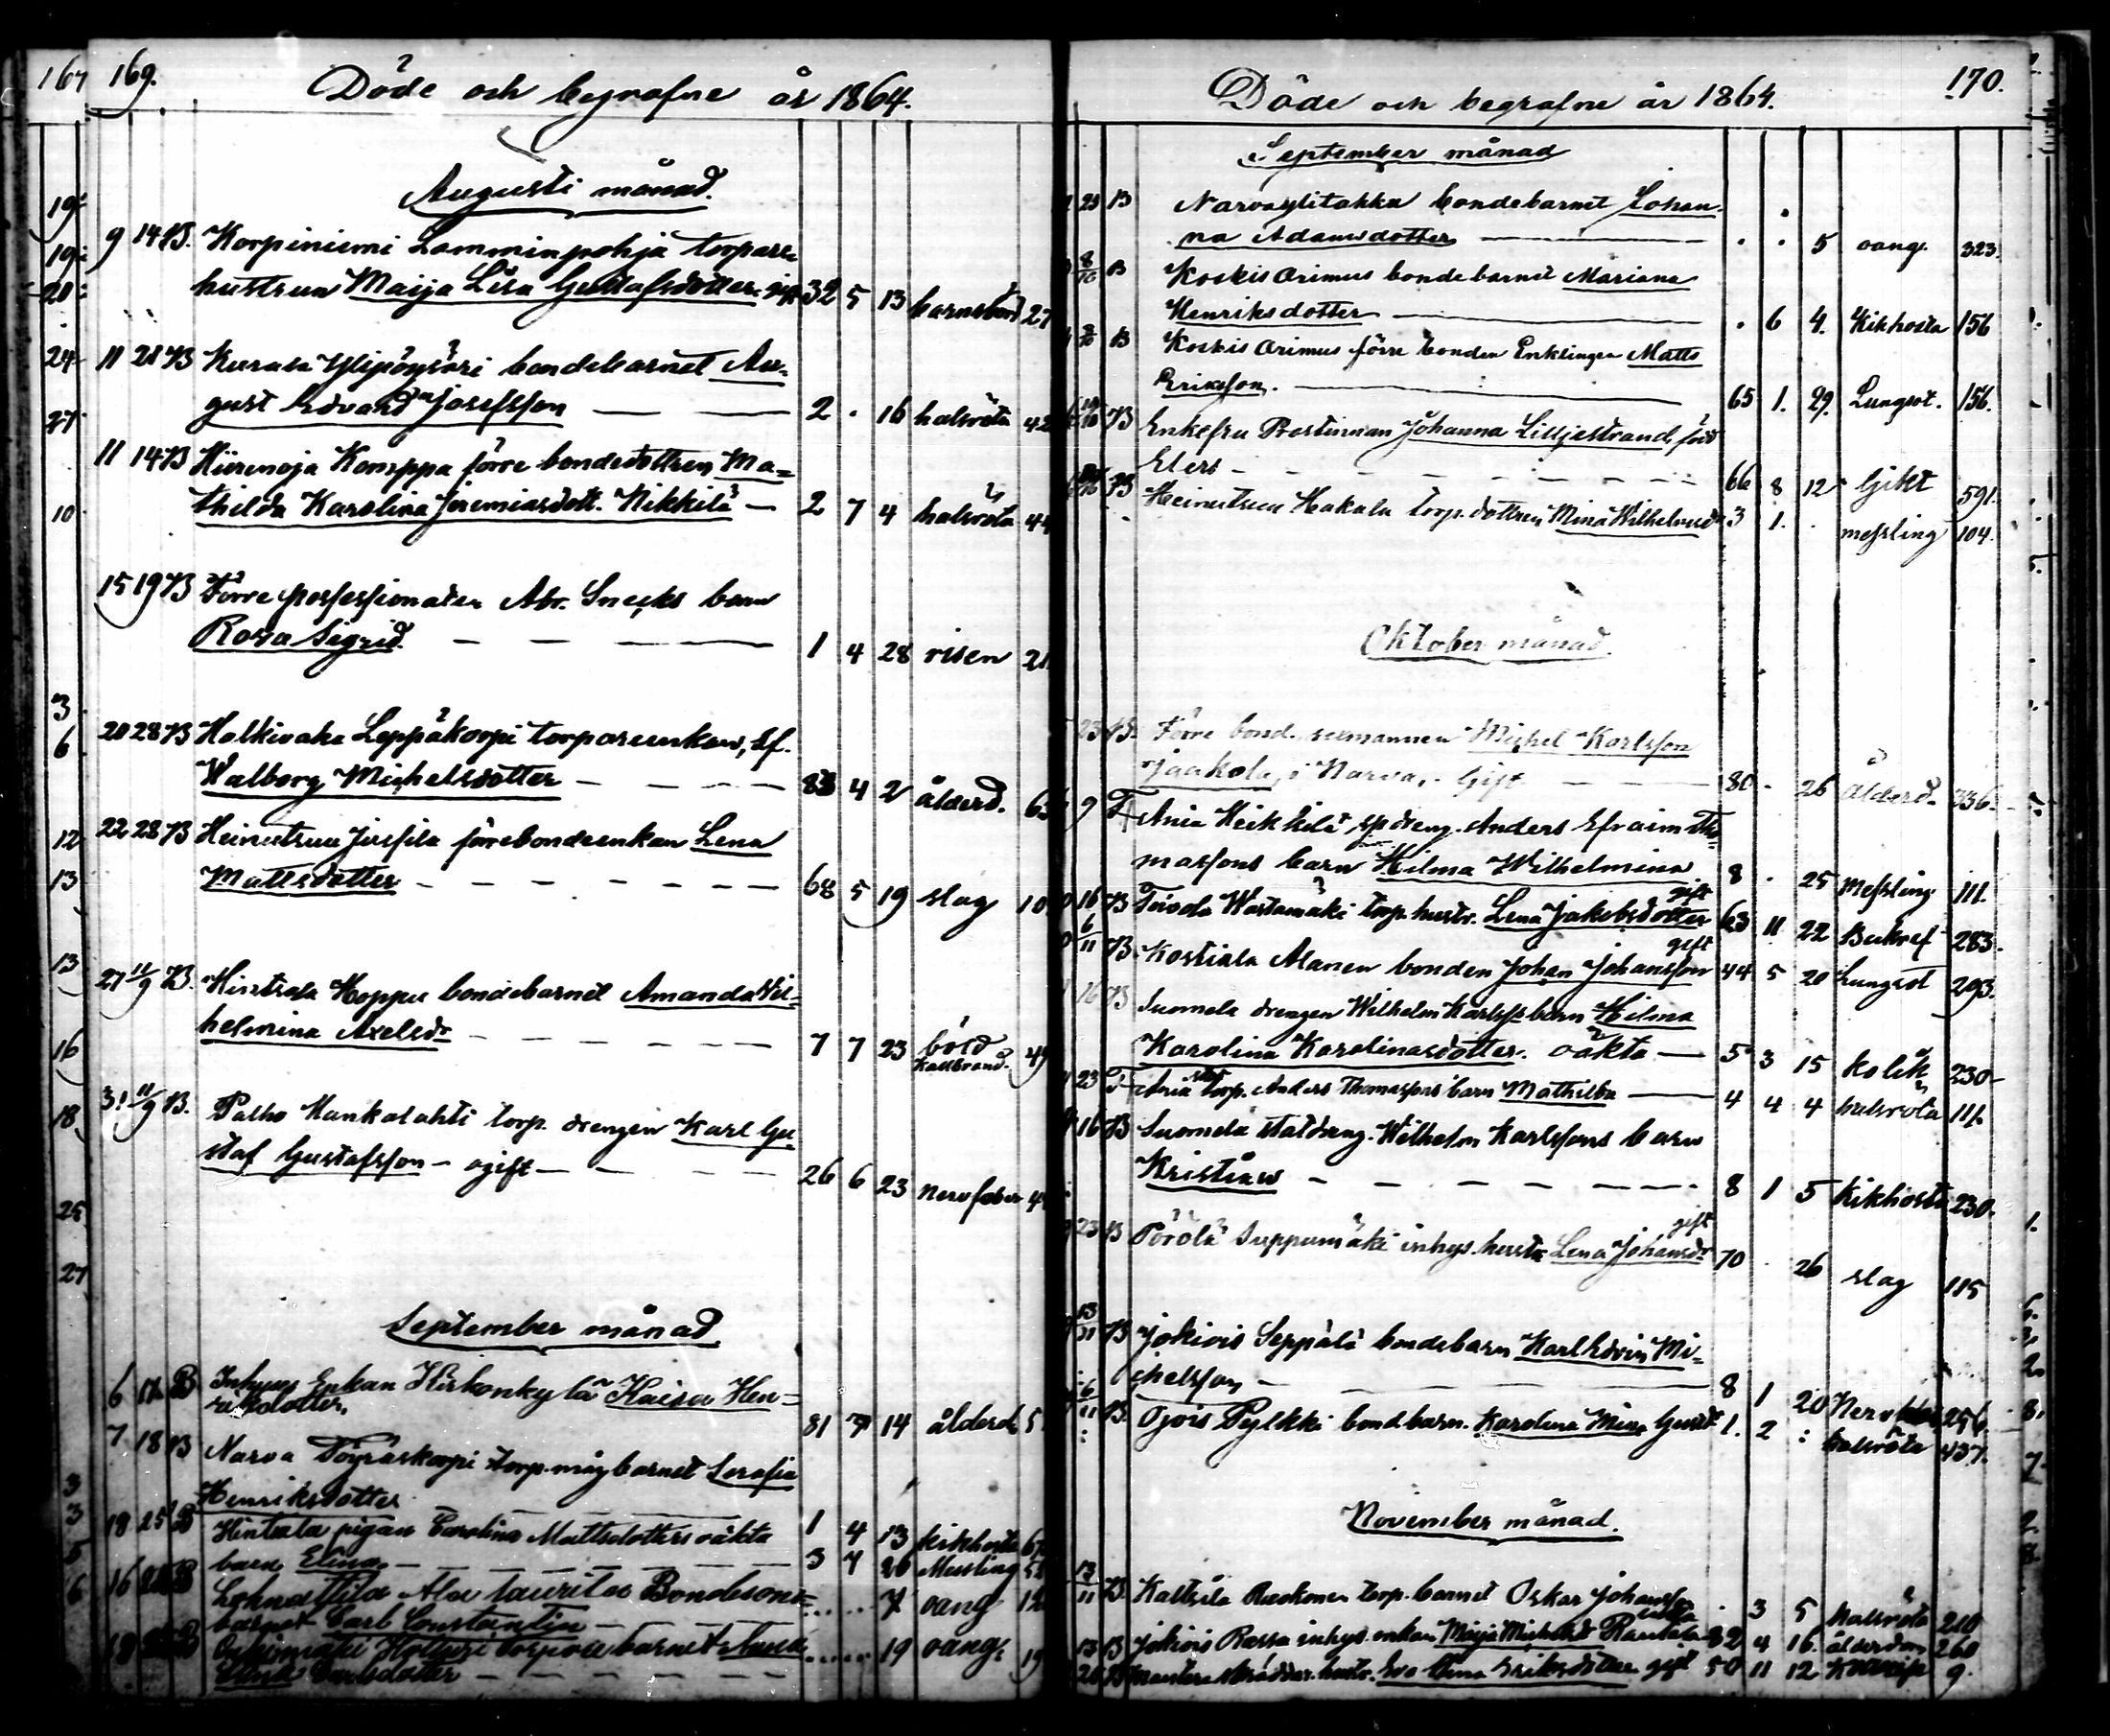 167 169. Döde och begrafne år 1864.
Augusti månad.
9 14 B. Korpiniemi Lamminpohja torpare-
hustrun Maija Lisa Gustafsdotter. gift 32 5 13 barnsbörd 27
11 21 B Kurala Ylipöysäri bondebarnet Au-
gust Edvard Josefsson — — 2 . 16 halsröta 42
11 14 B Hiirenoja Komppa förre bondedottren Ma-
thilda Karolina Jeremiasdott. Nikkilä — 2 7 4 halsröta 44
15 19 B Förre possessionaten Abr. Snecks barn
Rosa Sigrid. — — — — 1 4 28 risen 21
20 28 B Halkivaha Leppäkorpi torpareenkan, Ef.
Walborg Michelsdotter — — — — 83 4 2 ålderd. 63
22 28 B Heinutsuu Jussila förrebondeenkan Lena
Mattsdotter — — — — — — 68 5 19 slag 10
27 11/9 B. Hintsala Hoppu bondebarnet Amanda Wil-
helmina Axelsdr — — — — — 7 7 23 böld Kallbrand. 49
31 11/9 B. Palho Mankalahti torp. drengen Karl Gu-
staf Gustafsson — ogift — — — — 26 6 23 nervfeber 4
September månad.
6 B Inhyses Enkan Kirkonkylä Kaisa Hen-
riksdotter. 81 7 14 ålderd. 5
7 18 B Narva Töyräskorpi torp. måg barnet Serafia
Henriksdotter 1 4 13 kikhosta 67
18 25 B Hintsala pigan Carolina Mattsdotters oäkta
barn Elina — — — — 3 7 20 Messling 5
16 B Lahnattila Ala Laurila Bondesons
barnet Carl Constantin — — — 7 oang 12
18 B torpare barnet
— — — — 19 oang. 19
170.
Döde och begrafne år 1864.
September månad
23 B Narva Ylitakka bondebarnet Johan-
na Adamsdotter — . . 5 oang. 323
8/10 B Koskis Orimus bondebarnet Mariana
Henriksdotter — . 6 4. Kikhosta 156
B Koskis Orimus förre bonden Enklingen Matts
Eriksson. — 65 1. 29. Lungsot. 156.
B Enkefru Prostinnan Johanna Lilljestrand, född
Elers — — — — — — 66 8 12 Gikt 591.
B Heinutsuu Hakala torp. dottren Mina Wilhelmsdr 3 1. . messling 104.
Oktober månad.
23 B. Förre bond. sexmannen Michel Karlsson
Jaakola, i Narva, . Gift — — 80 . 26 Ålderd. 336.
9 F Ania Heikkilä spdreng. Anders Efraim Tho-
massons barn Hilma Wilhelmina 8 . 25 Messling 111.
16 B Toivola Wastamäki torp. hustr. Lena Jakobsdotter gift 63 11 22 Bukref 283.
6/11 B. Kostiala Alanen bonden Johan Johansson gift 44 5 20 Lungsot 293.
16 B Suomela drengen Wilhelm Karlss barn Hilma
Karolina Karolinasdotter. oäkta — 5 3 15 kolik 230
23 F Ania stat torp. Anders Thomassons barn Mathilda — 4 4 4 halsröta 111.
16 B Suomela statdreng. Wilhelm Karlssons barn
Kristian — — — — — 8 1 5 Kikhosta 230.
23 B Pörölä Suppumäki inhys. hustr. Lena Johansdr gift 70 . 26 slag 115
13/11 B Jokiois Seppälä bondebarn Karl Edvin Mi-
chelsson — 8 1 20 Nerv 256.
6/11 B. Ojois Pylkki bondbarn. Karolina Mina Gustdr 1. 2 : halsröta 437.
November månad.
13/11 B. Kallsila Raskonen torp. barnet Oskar Johansson . 3 5 halsröta 210
13 B Jokiois Rassa inhys. enkan Maja Michelsd Rantala 82 4 16. ålderdom 260
20 B skräddar. hustr. Eva Lena Eriksdotter gift 50 11 12 9.